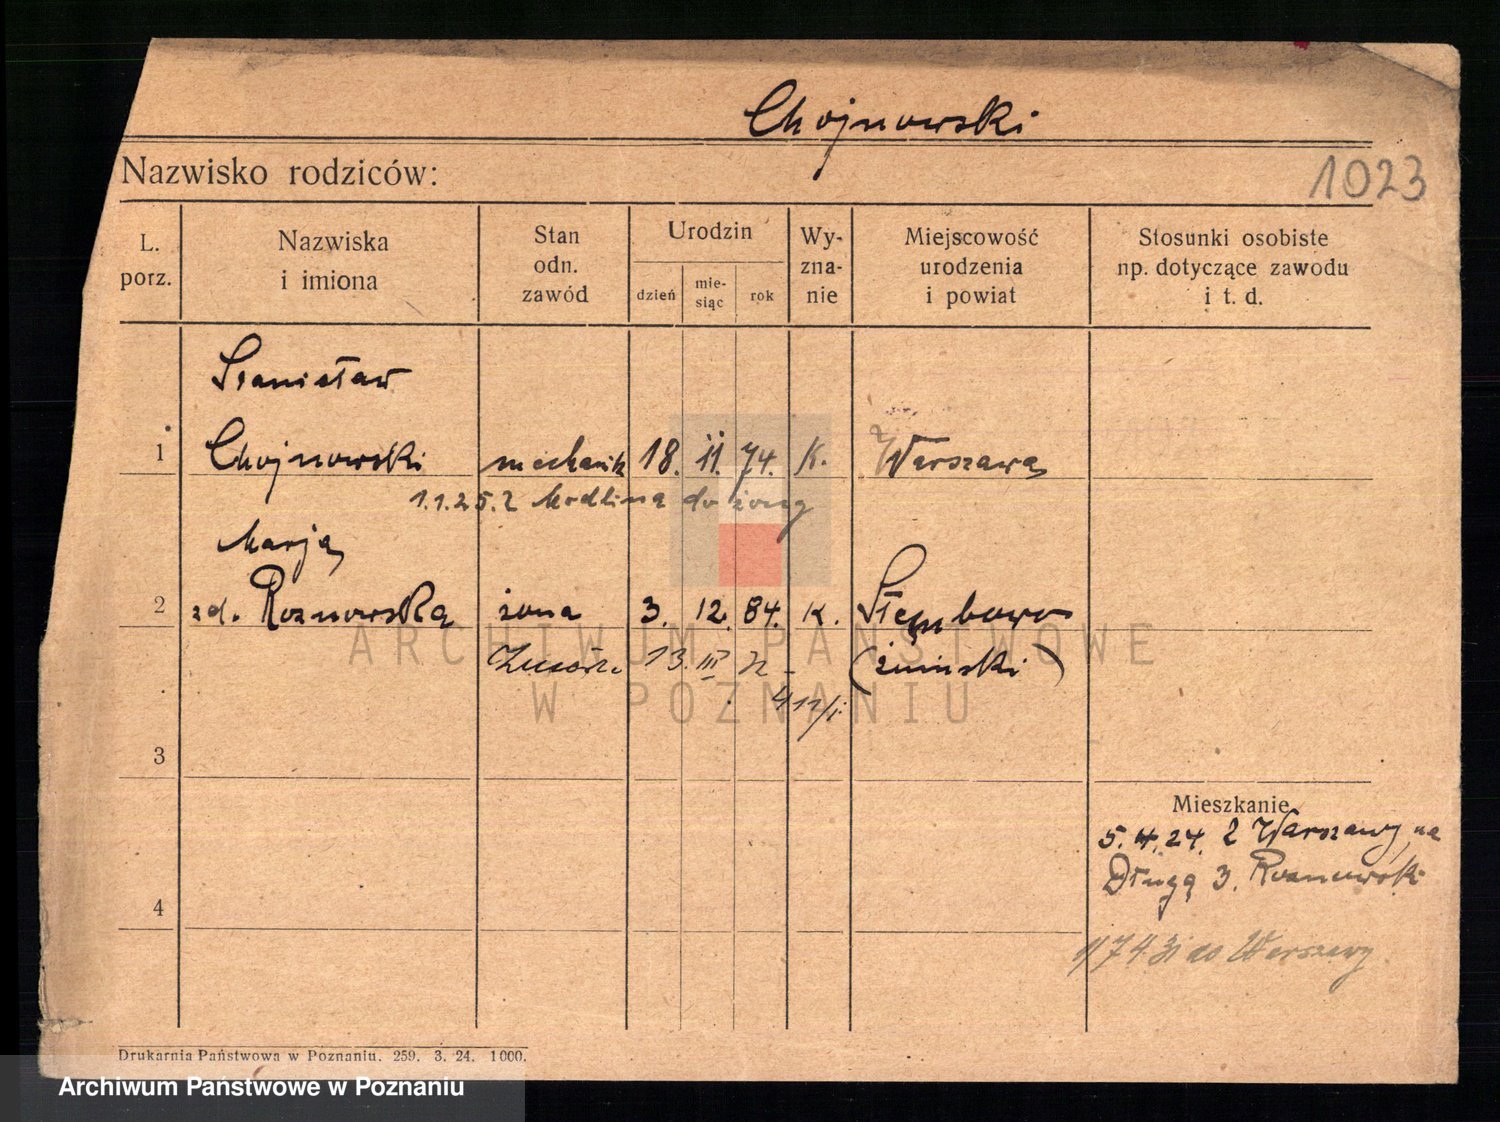 Chojnowski
Nazwisko rodziców:
1023
L. porz.
Nazwiska i imiona
Stan odn. zawód
Urodzin
dzień
mie-siąc
rok
Wy-zna-nie
Miejscowość urodzenia i powiat
Stosunki osobiste np. dotyczące zawodu i t. d.
Stanisław
1 Chojnowski mechanik 18. 11. 74. K. Warszawa
1.1.25. z Modlina do żony
Marja
2 zd. Roznowska żona 3. 12. 84. K.
13. III
(żniński)
3
Mieszkanie
5.4.24. z Warszawy na
Długą 3. Roznowski
4
do Warszawy
Drukarnia Państwowa w Poznaniu. 259. 3. 24. 1000.
ARCHIWUM PAŃSTWOWE
W POZNANIU
Archiwum Państwowe w Poznaniu